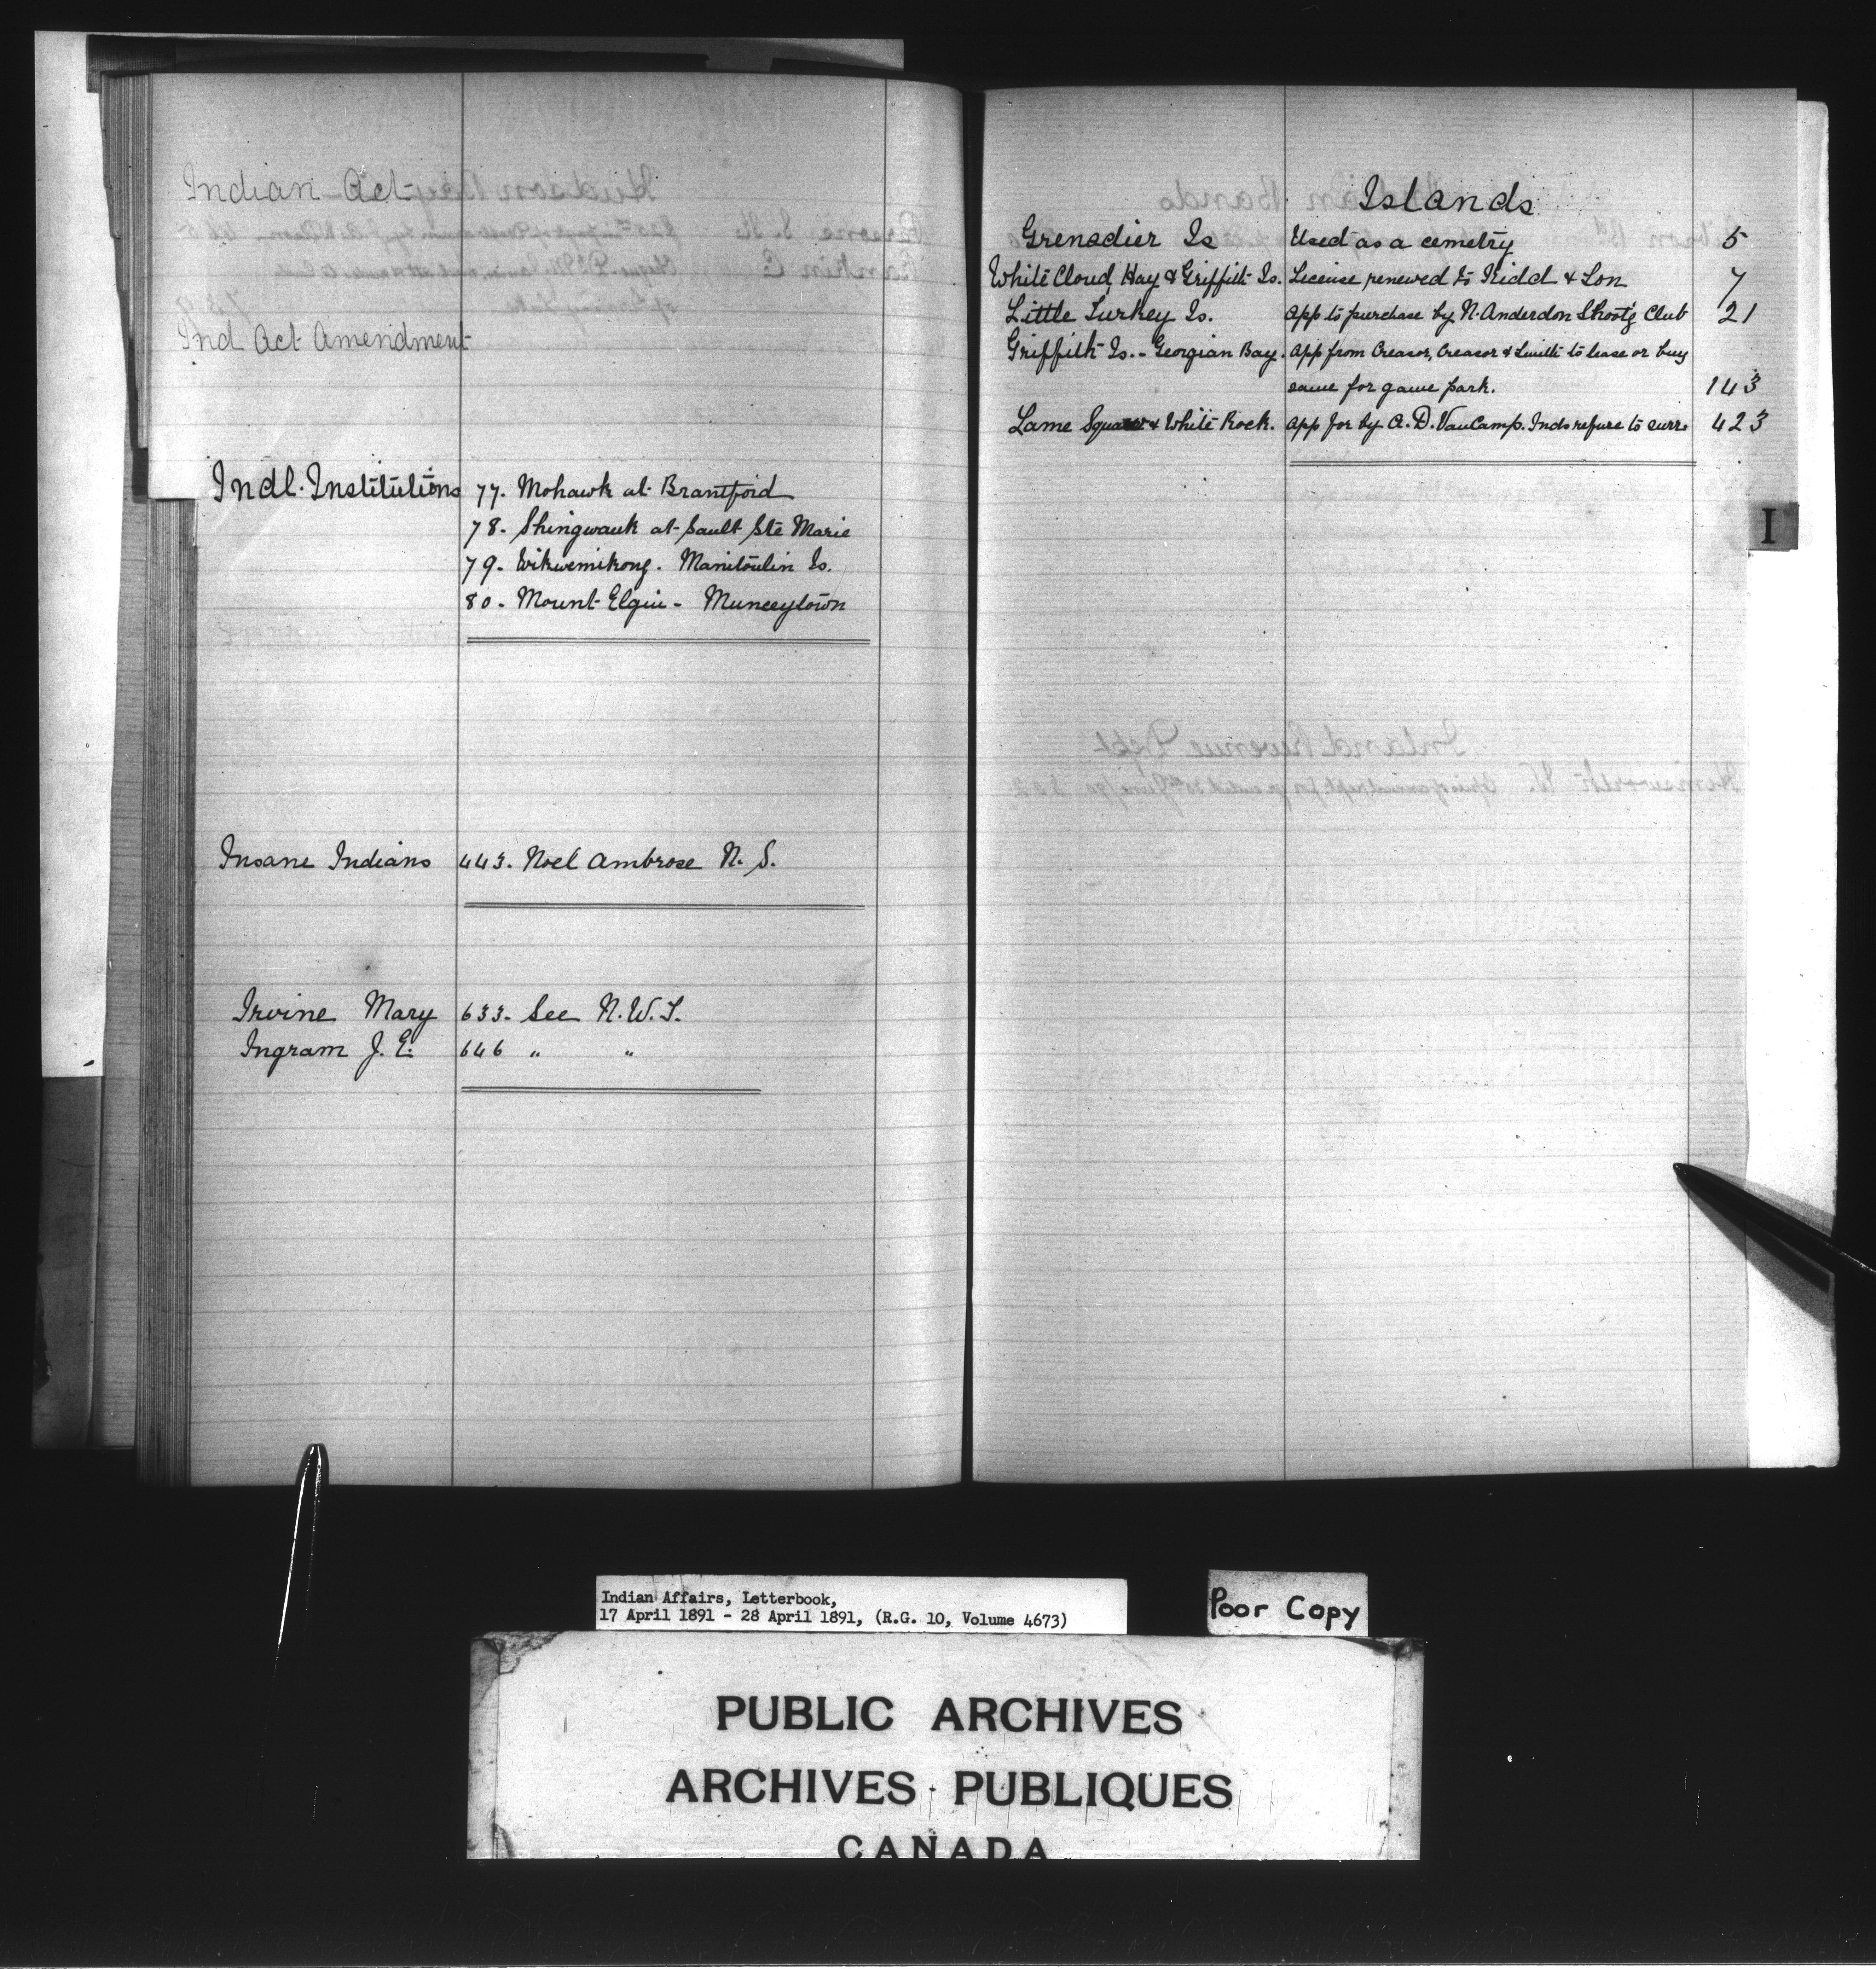 Indian Act
Ind Act Amendment
Indl. Institutions 77. Mohawk at Brantford
78. Shingwauk at Sault Ste Marie
79. Wikwemikong. Manitoulin Is.
80. Mount Elgin - Munceytown
Insane Indians 443. Noel Ambrose N. S.
Irvine Mary 633. See N.W.T.
Ingram J. E. 646 " "
Islands
Grenadier Is Used as a cemetry 5
White Cloud, Hay & Griffith Is. License renewed to Kidd & Son 7
Little Turkey Is. App to purchase by N. Anderdon Shootg Club 21
Griffith Is. - Georgian Bay. App from Creasor, Creasor & Smith to lease or buy
same for game park. 143
Lame Squaw & White Rock. App for by A. D. VanCamp. Inds refuse to surr. 423
I
Indian Affairs, Letterbook,
17 April 1891 - 28 April 1891, (R.G. 10, Volume 4673)
Poor Copy
PUBLIC ARCHIVES
ARCHIVES PUBLIQUES
CANADA